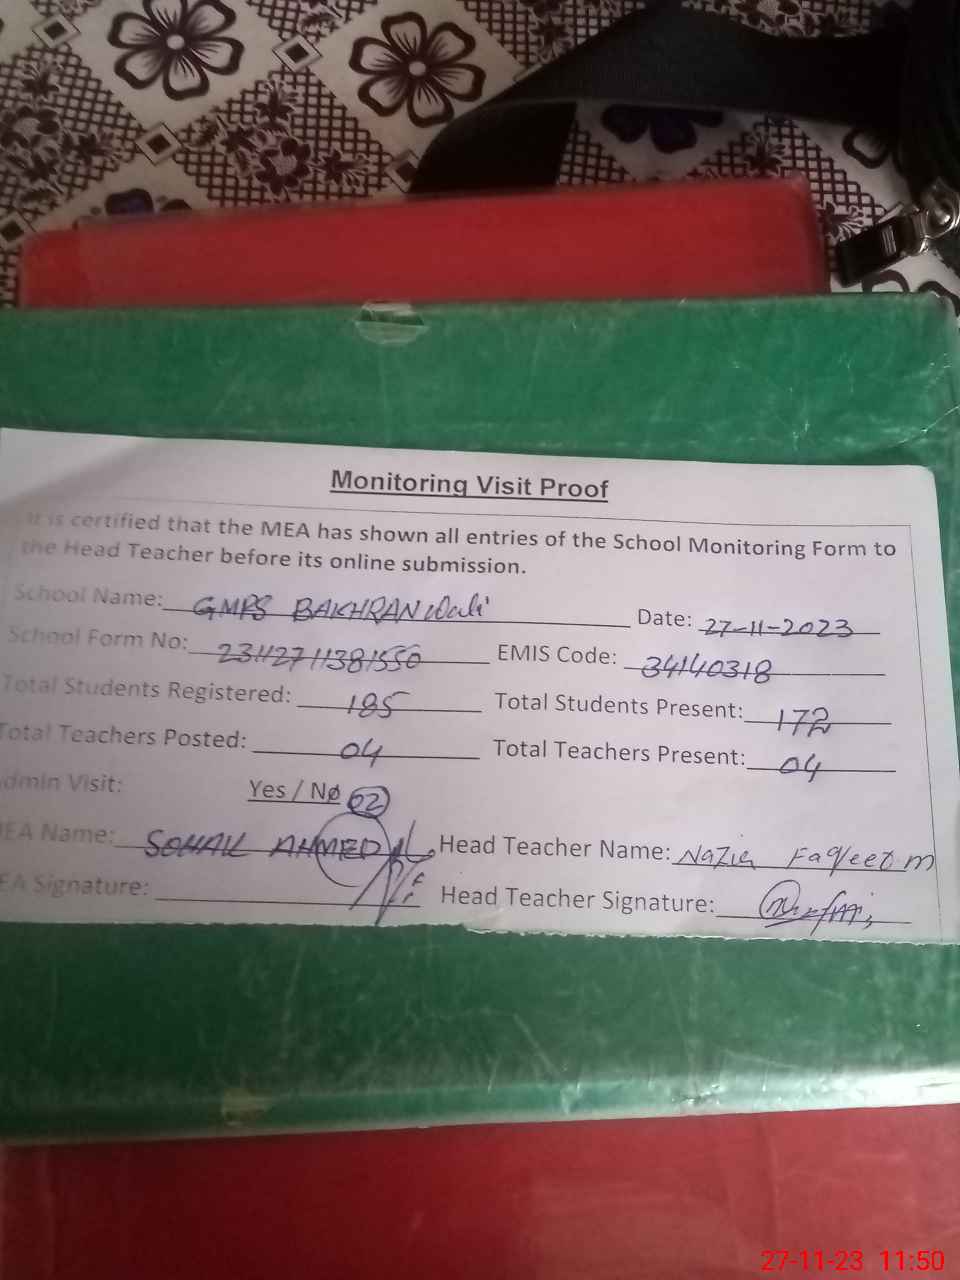 Monitoring Visit Proof
It is certified that the MEA has shown all entries of the School Monitoring Form to
the Head Teacher before its online submission.
School Name: GMPS BAKHRAN Wali Date: 27-11-2023
School Form No: 23112711381550 EMIS Code: 34140318
Total Students Registered: 185 Total Students Present: 172
Total Teachers Posted: 04 Total Teachers Present: 04
dmin Visit: Yes / No 02
EA Name: SOHAIL AHMED Head Teacher Name: Nazia
EA Signature: Head Teacher Signature:
27-11-23 11:50